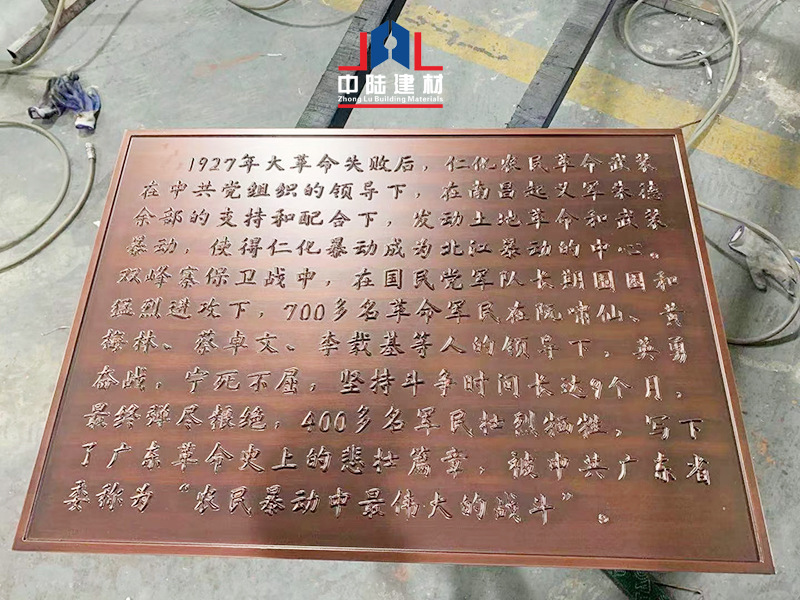 中陆建材
Zhong Lu Building Materials
1927年大革命失败后，仁化农民革命武装
在中共党组织的领导下，在南昌起义军朱德
余部的支持和配合下，发动土地革命和武装
暴动，使得仁化暴动成为北江暴动的中心。
双峰寨保卫战中，在国民党军队长期围困和
猛烈进攻下，700多名革命军民在阮啸仙、黄
梅林、蔡卓文、李载基等人的领导下，英勇
奋战，宁死不屈，坚持斗争时间长达9个月，
最终弹尽粮绝，400多名军民壮烈牺牲，写下
了广东革命史上的悲壮篇章，被中共广东省
委称为“农民暴动中最伟大的战斗”。